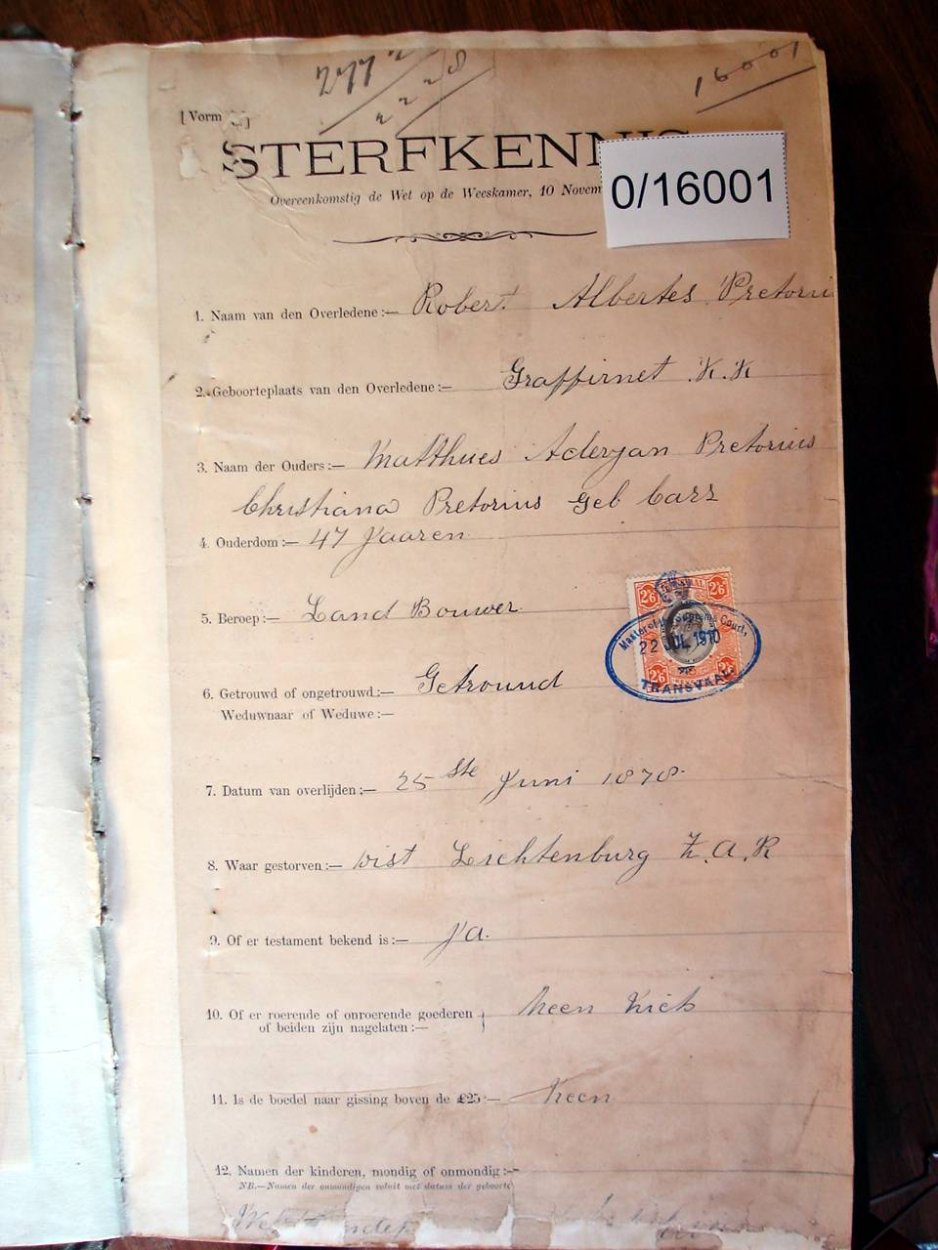 277
2228
16001
[Vorm
STERFKENNIS
0/16001
Overeenkomstig de Wet op de Weeskamer, 10 Novem
1. Naam van den Overledene:— Robert Albertes Pretoriu
2. Geboorteplaats van den Overledene:— Graffirnet K.K
3. Naam der Ouders:— Matthues Aderyan Pretorius
Christiana Pretorius Geb Carr
4. Ouderdom:— 47 Jaaren
5. Beroep:— Land Bouwer
2/6 2/6
Master of the Supreme Court,
22 JUL 1910
2/6
TRANSVAAL
6. Getrouwd of ongetrouwd:— Getround
Weduwnaar of Weduwe:—
7. Datum van overlijden:— 25ste Juni 1878.
8. Waar gestorven:— Dist Lichtenburg Z.A.R
9. Of er testament bekend is:— Ja.
10. Of er roerende of onroerende goederen
of beiden zijn nagelaten:— Neen Niets
11. Is de boedel naar gissing boven de £25:— Neen
12. Namen der kinderen, mondig of onmondig:—
NB.—Namen der onmondigen voluit met datum der geboorte